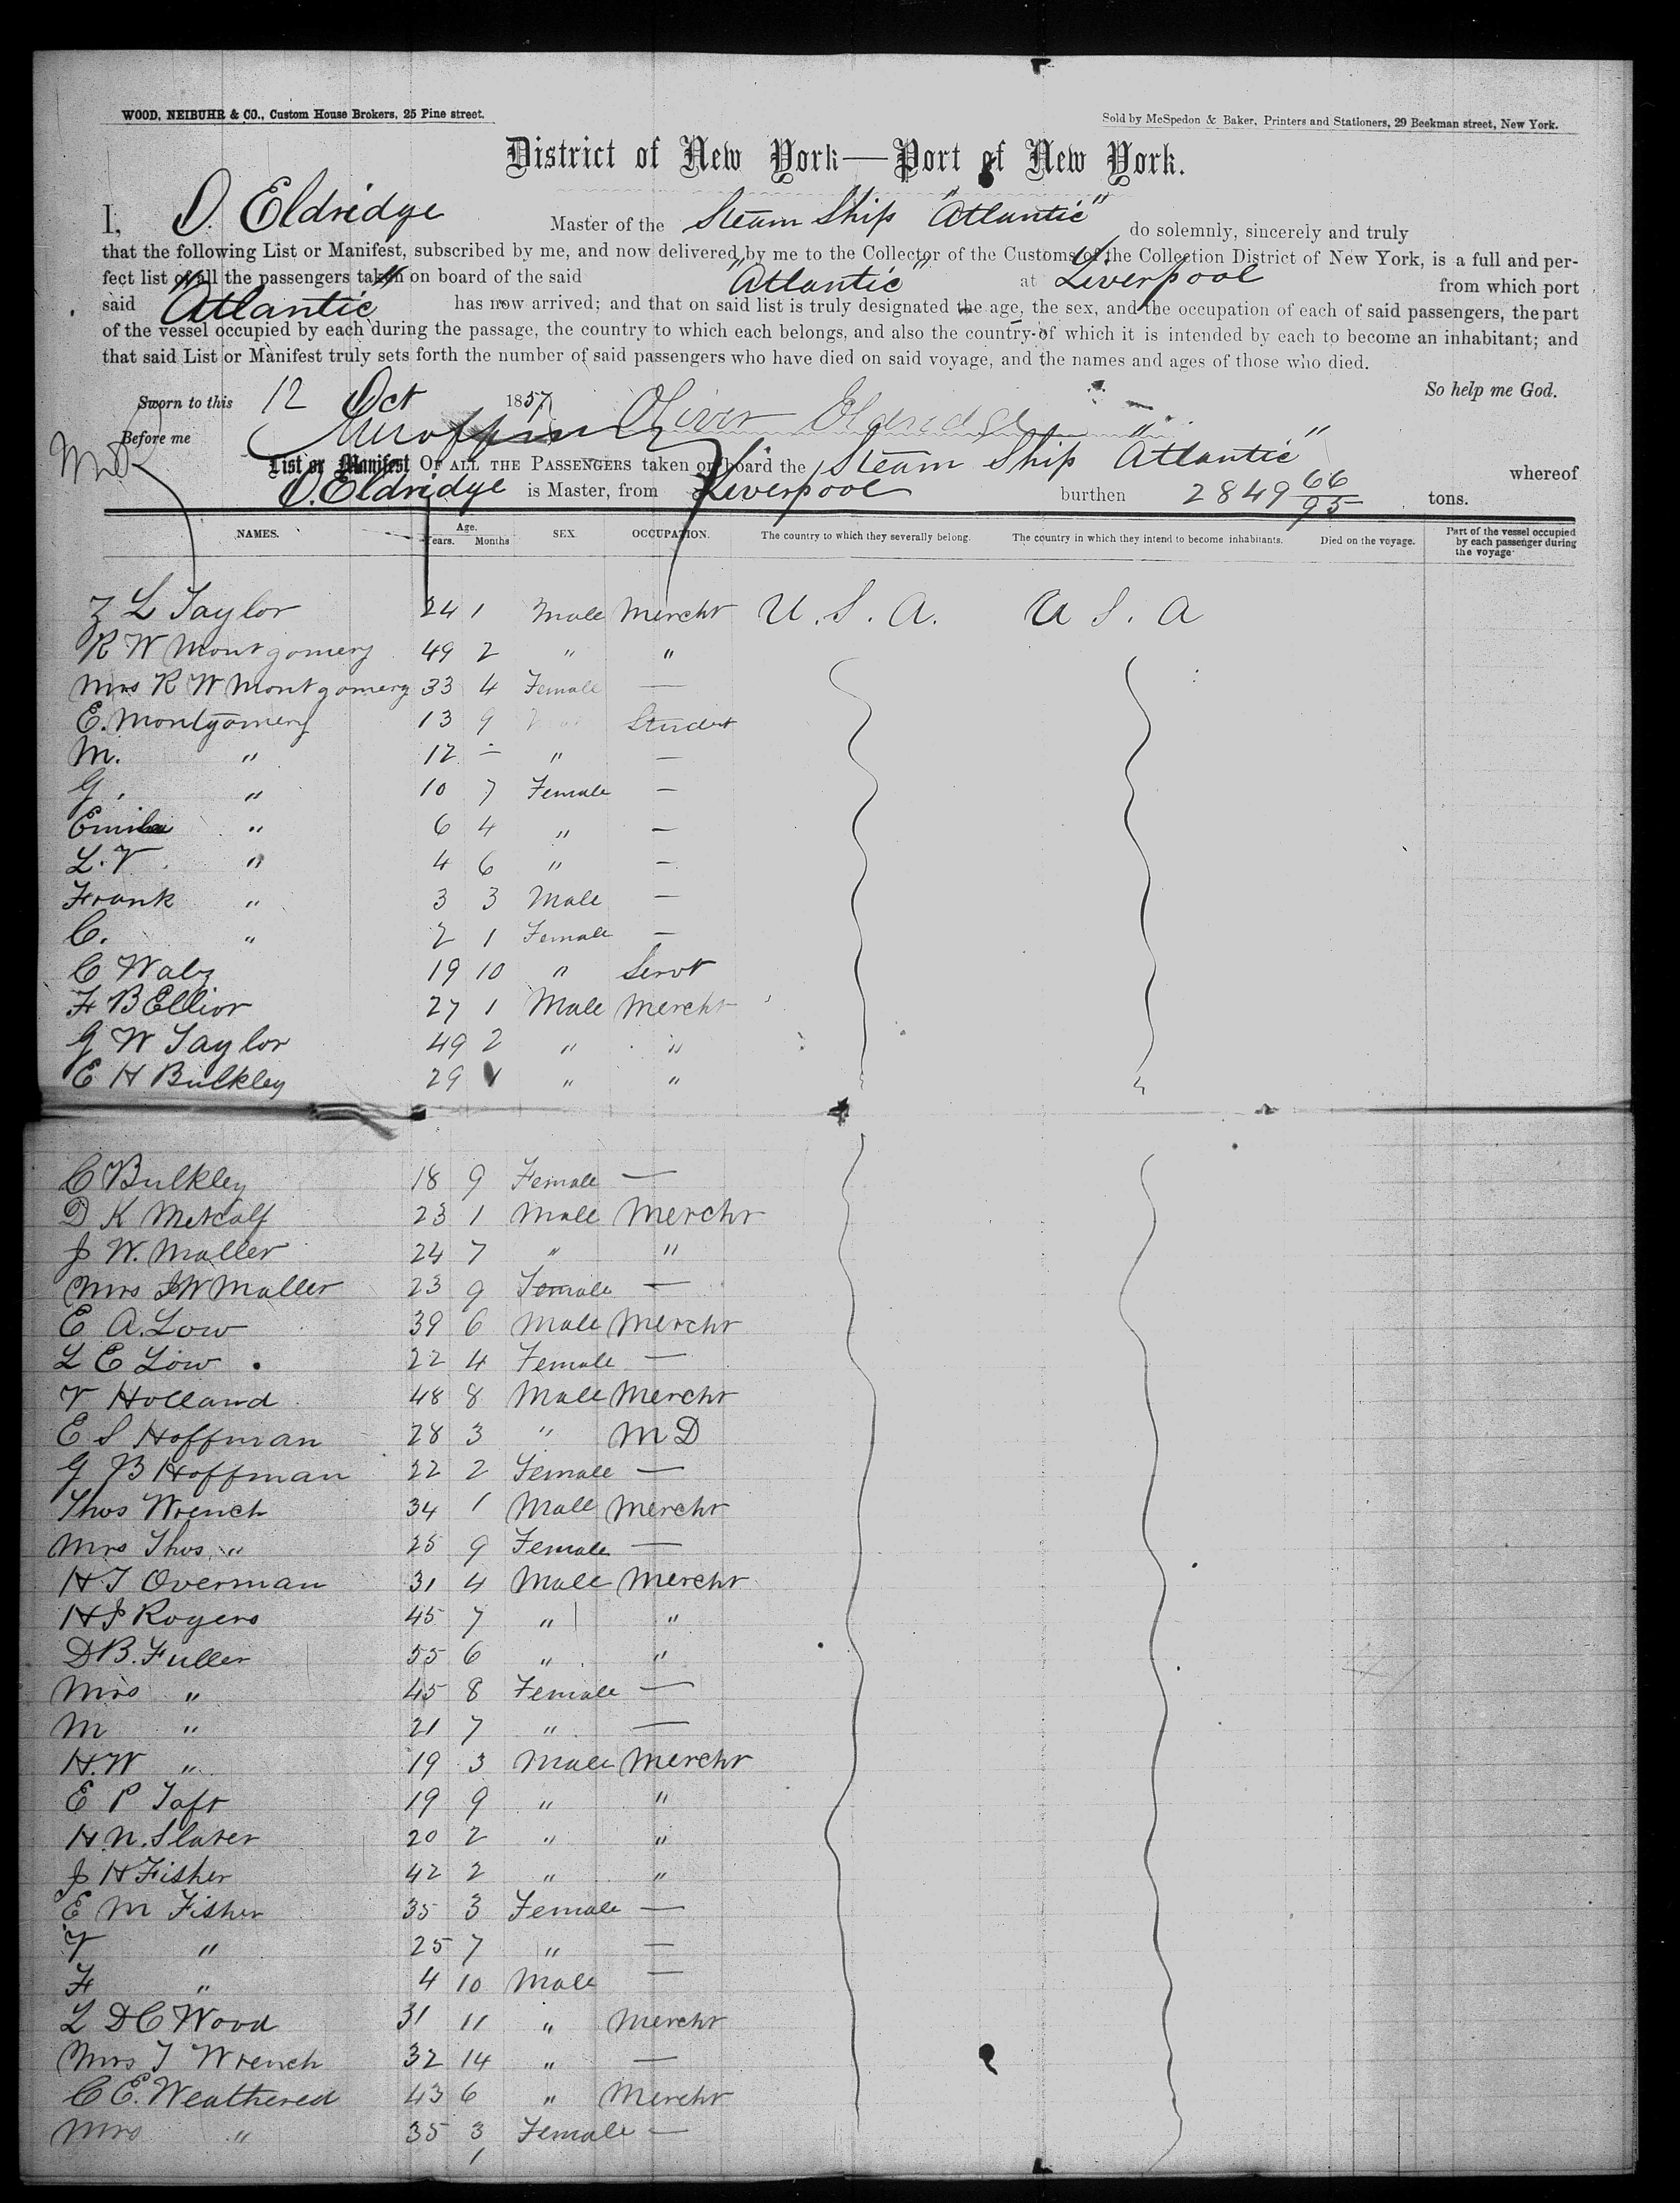 WOOD, NEIBUHR & CO., Custom House Brokers, 25 Pine street.
Sold by McSpedon & Baker, Printers and Stationers, 29 Beekman street, New York.
District of New York—Port of New York.
I, O. Eldridge Master of the Steam Ship "Atlantic" do solemnly, sincerely and truly
that the following List or Manifest, subscribed by me, and now delivered by me to the Collector of the Customs of the Collection District of New York, is a full and per-
fect list of all the passengers taken on board of the said "Atlantic" at Liverpool from which port
said Atlantic has now arrived; and that on said list is truly designated the age, the sex, and the occupation of each of said passengers, the part
of the vessel occupied by each during the passage, the country to which each belongs, and also the country of which it is intended by each to become an inhabitant; and
that said List or Manifest truly sets forth the number of said passengers who have died on said voyage, and the names and ages of those who died.
So help me God.
Sworn to this 12 Oct 1857
Oliver Eldridge
Before me
List or Manifest OF ALL THE PASSENGERS taken on board the Steam Ship "Atlantic" whereof
O. Eldridge is Master, from Liverpool burthen 2849 66/95 tons.
NAMES. Age. Years. Months SEX. OCCUPATION. The country to which they severally belong. The country in which they intend to become inhabitants. Died on the voyage. Part of the vessel occupied by each passenger during the voyage
Z L Taylor 24 1 Male Mercht U. S. A. U S. A
R W Montgomery 49 2 " "
Mrs R W Montgomery 33 4 Female —
E. Montgomery 13 9 Student
M. " 12 - " —
G. " 10 7 Female —
" 6 4 " —
L. V. " 4 6 " —
Frank " 3 3 Male —
C. " 2 1 Female —
C 19 10 " Servt
F B Elliot 27 1 Male Mercht
G W Taylor 49 2 " "
E H Bulkley 29 " "
C Bulkley 18 9 Female —
D K Metcalf 23 1 Male Mercht
J W. Maller 24 7 " "
Mrs J W Maller 23 9 Female —
E A. Low 39 6 Male Mercht
L E Low 22 4 Female —
V Holland 48 8 Male Mercht
E S Hoffman 28 3 " M D
G B Hoffman 22 2 Female —
Thos Wrench 34 1 Male Mercht
Mrs Thos " 25 9 Female —
H T Overman 31 4 Male Mercht
H J Rogers 45 7 " "
D B. Fuller 55 6 " "
Mrs " 45 8 Female —
M " 21 7 " —
H. W " 19 3 Male Mercht
E P Taft 19 9 " "
H. N. Slater 20 2 " "
J H Fisher 42 2 " "
E M Fisher 35 3 Female —
V " 25 7 " —
F " 4 10 Male —
L D C Wood 31 11 " Mercht
Mrs T Wrench 32 14 " —
C E. Weathered 43 6 " Mercht
Mrs " 35 3 Female —
1